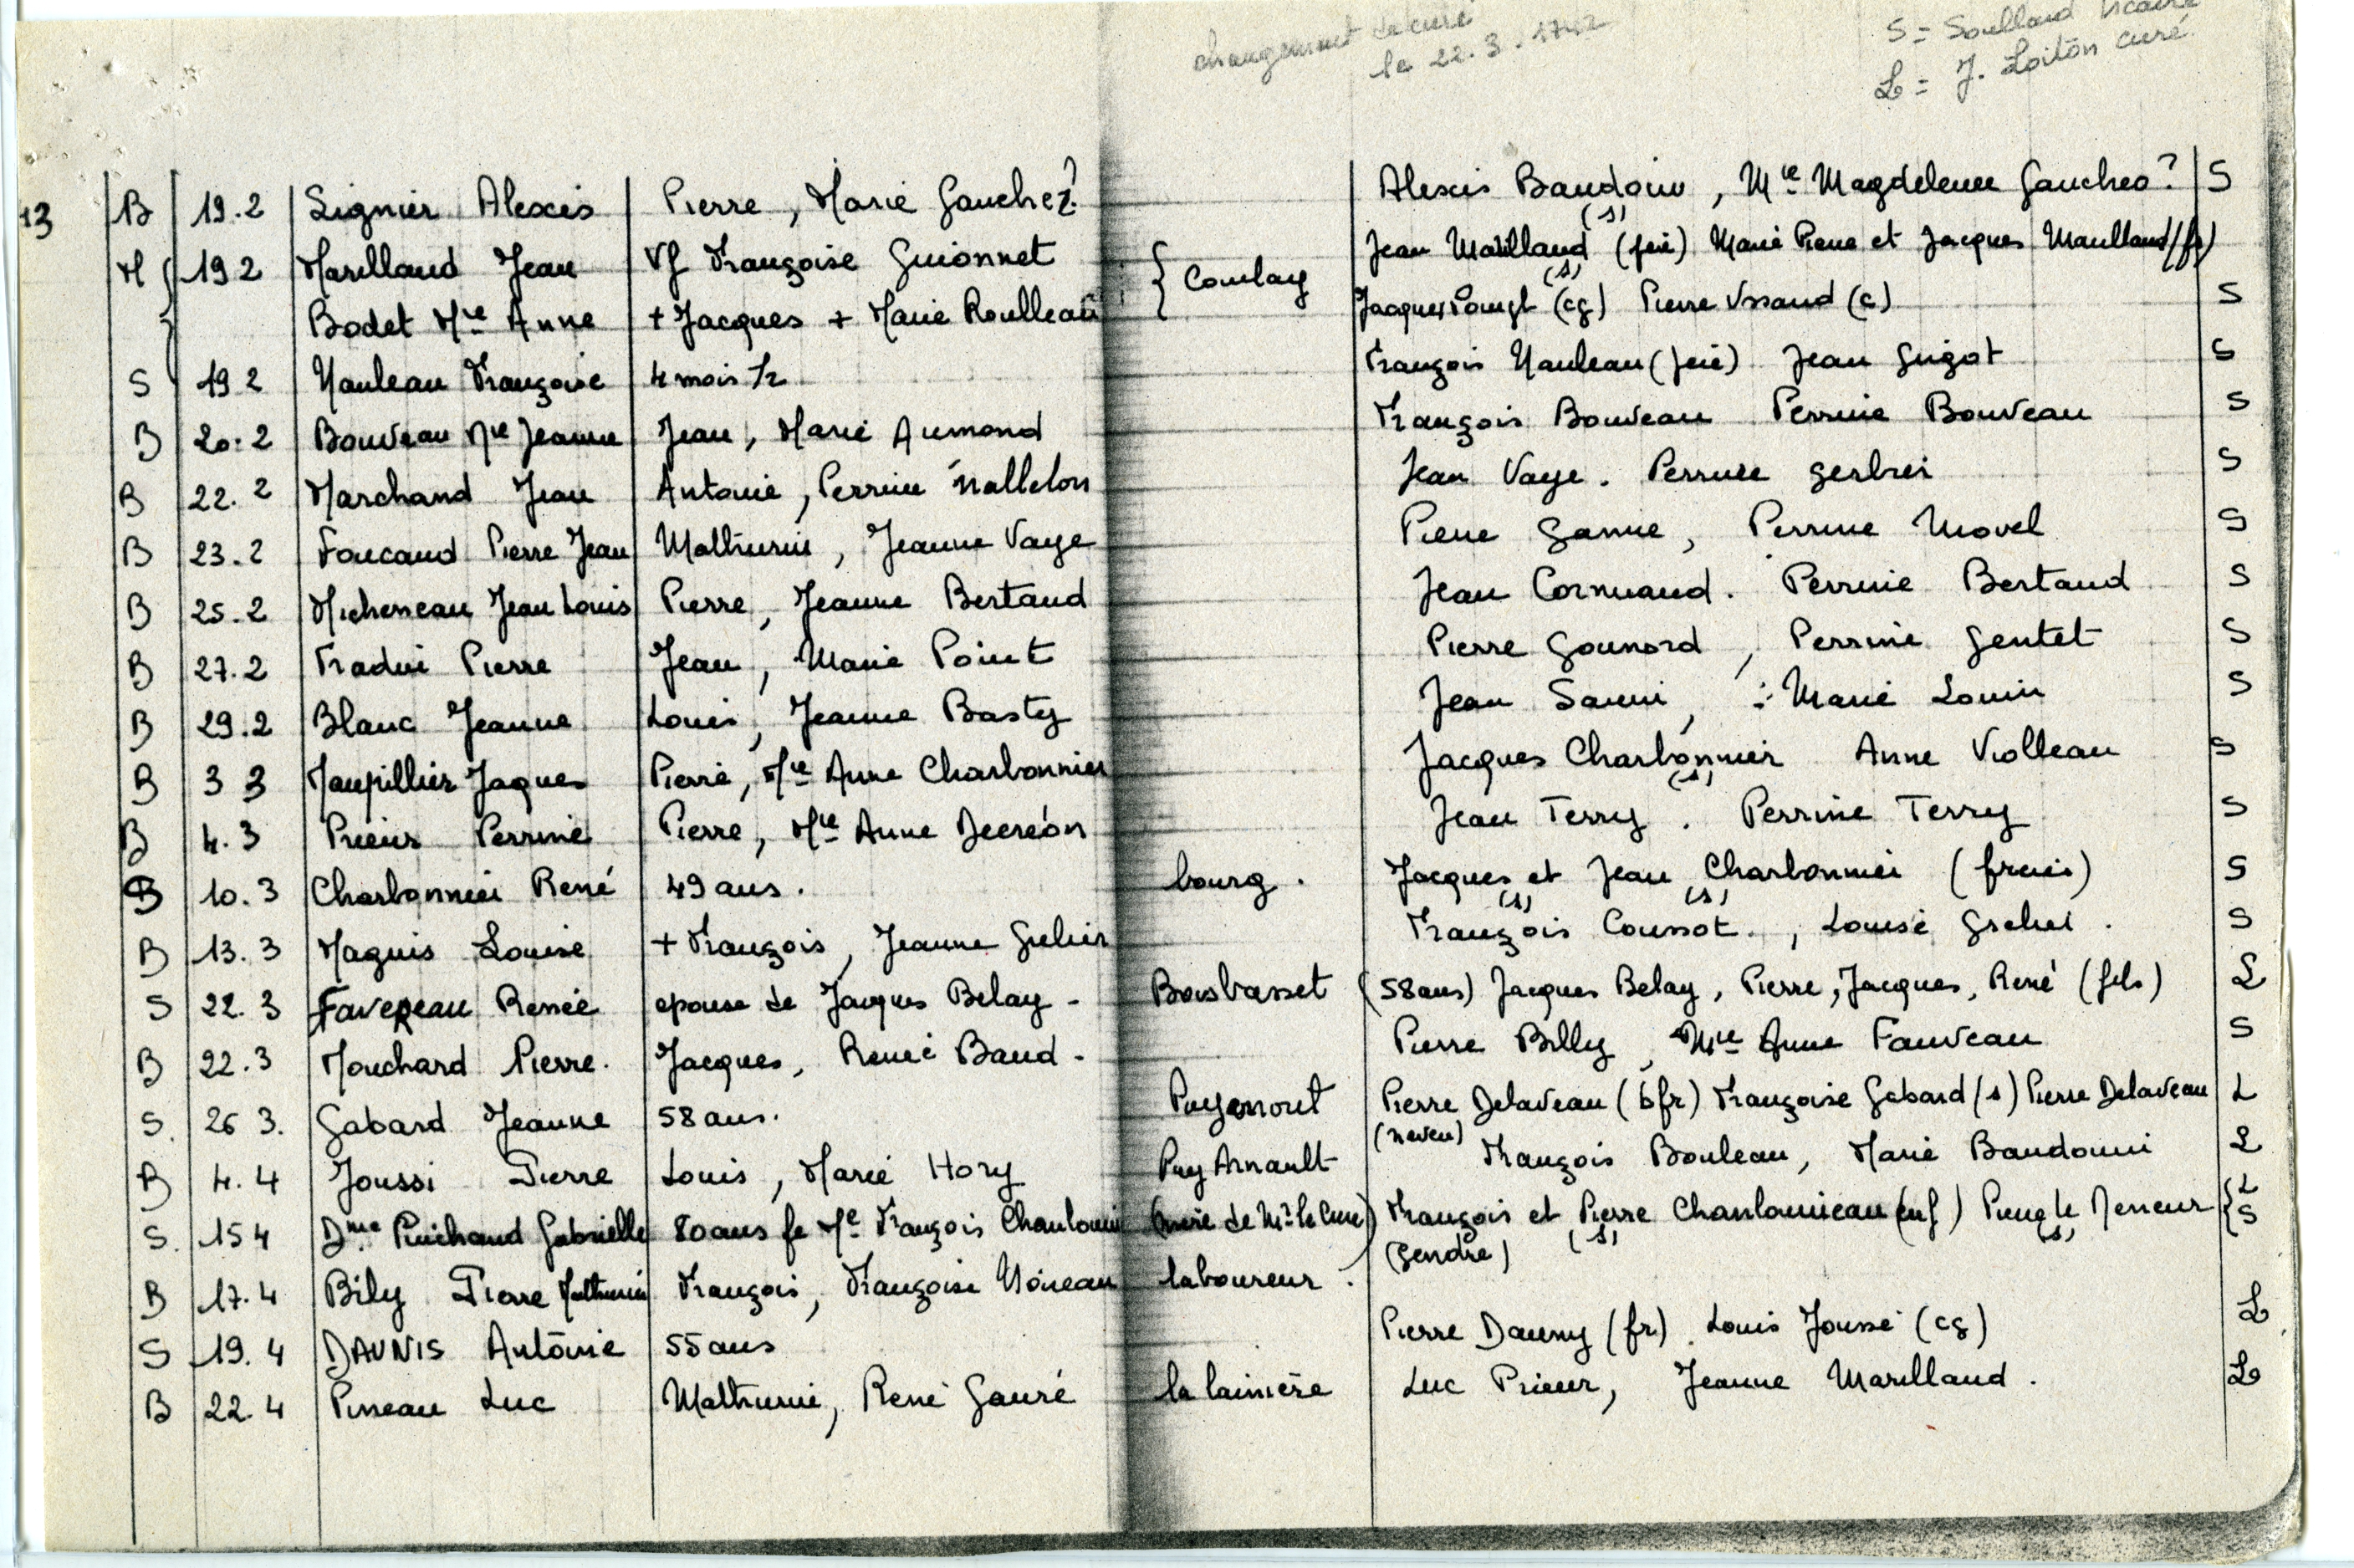 changement de curé
le 22.3.1742
S = Soulland vicaire
L = J. Loiton curé
13 B 19.2 Lignier Alexis Pierre, Marie Gauchez? Alexis Baudoin, Mie Magdeleine Gaucheo? S
M 19 2 Marilland Jean Vf Françoise Guionnet { Coulay Jean Marilland (s) (père) Marie Pierre et Jacques Maulland (fr)
Bodet Mie Anne + Jacques + Marie Roulleau Jacques (s) (cg) Pierre Vssaud (c) S
S 19 2 Nauleau Françoise 4 mois 1/2 François Nauleau (père) Jean Guigot S
B 20.2 Bouveau Mie Jeanne Jean, Marie Aumond François Bouveau Perrine Bouveau S
B 22.2 Marchand Jean Antoine, Perrine Nallelon Jean Vaye. Perrine Gerbrei S
B 23.2 Foucaud Pierre Jean Mathurin, Jeanne Vaye Pierre Ganne, Perrine Movel S
B 25.2 Micheneau Jean Louis Pierre, Jeanne Bertaud Jean Cornuaud. Perrine Bertaud S
B 27.2 Fradin Pierre Jean, Marie Point Pierre Gounord, Perrine Gentet S
B 29.2 Blanc Jeanne Louis, Jeanne Basty Jean Sauni, Marie Louin S
B 3 3 Maupillier Jaques Pierre, Mie Anne Charbonnier Jacques Charbonnier (s) Anne Violleau S
B 4.3 Prieur Perrine Pierre, Mie Anne Decreón Jean Terry. Perrine Terry S
B 10.3 Charbonnier René 49 ans. bourg. Jacques (s) et Jean (s) Charbonnier (frères) S
B 13.3 Maguis Louise + François, Jeanne Grelier François Coussot., Louise Grelier. S
S 22.3 FaveReau Renée epouse de Jacques Belay - Boisbasset (58 ans) Jacques Belay, Pierre, Jacques, René (fils) L
B 22.3 Mouchard Pierre. Jacques, Renée Baud - Pierre Billy, Mie Anne Fauveau S
S. 26 3. Gabard Jeanne 58 ans. Puyarnout Pierre Delaveau (bfr) Françoise Gabard (s) Pierre Delaveau L
(neveu)
B 4.4 Joussi Pierre Louis, Marie Hory Puy Arnault François Bouleau, Marie Baudouin L
S. 15 4 Dme Puichaud Gabrielle 80 ans fe Me François Chanlouin (mère de Mr le Curé) François et Pierre (s) Chanlouineau (enf) le Meneur (s) { L S
(Gendre)
B 17.4 Bily Pierre Mathurin François, Françoise Noireau laboureur.
S 19.4 DAUNIS Antoine 55 ans Pierre Dauny (fr). Louis Jousse (cg) L
B 22.4 Pineau Luc Mathurin, René Gauré la lainière Luc Prieur, Jeanne Marilland. L